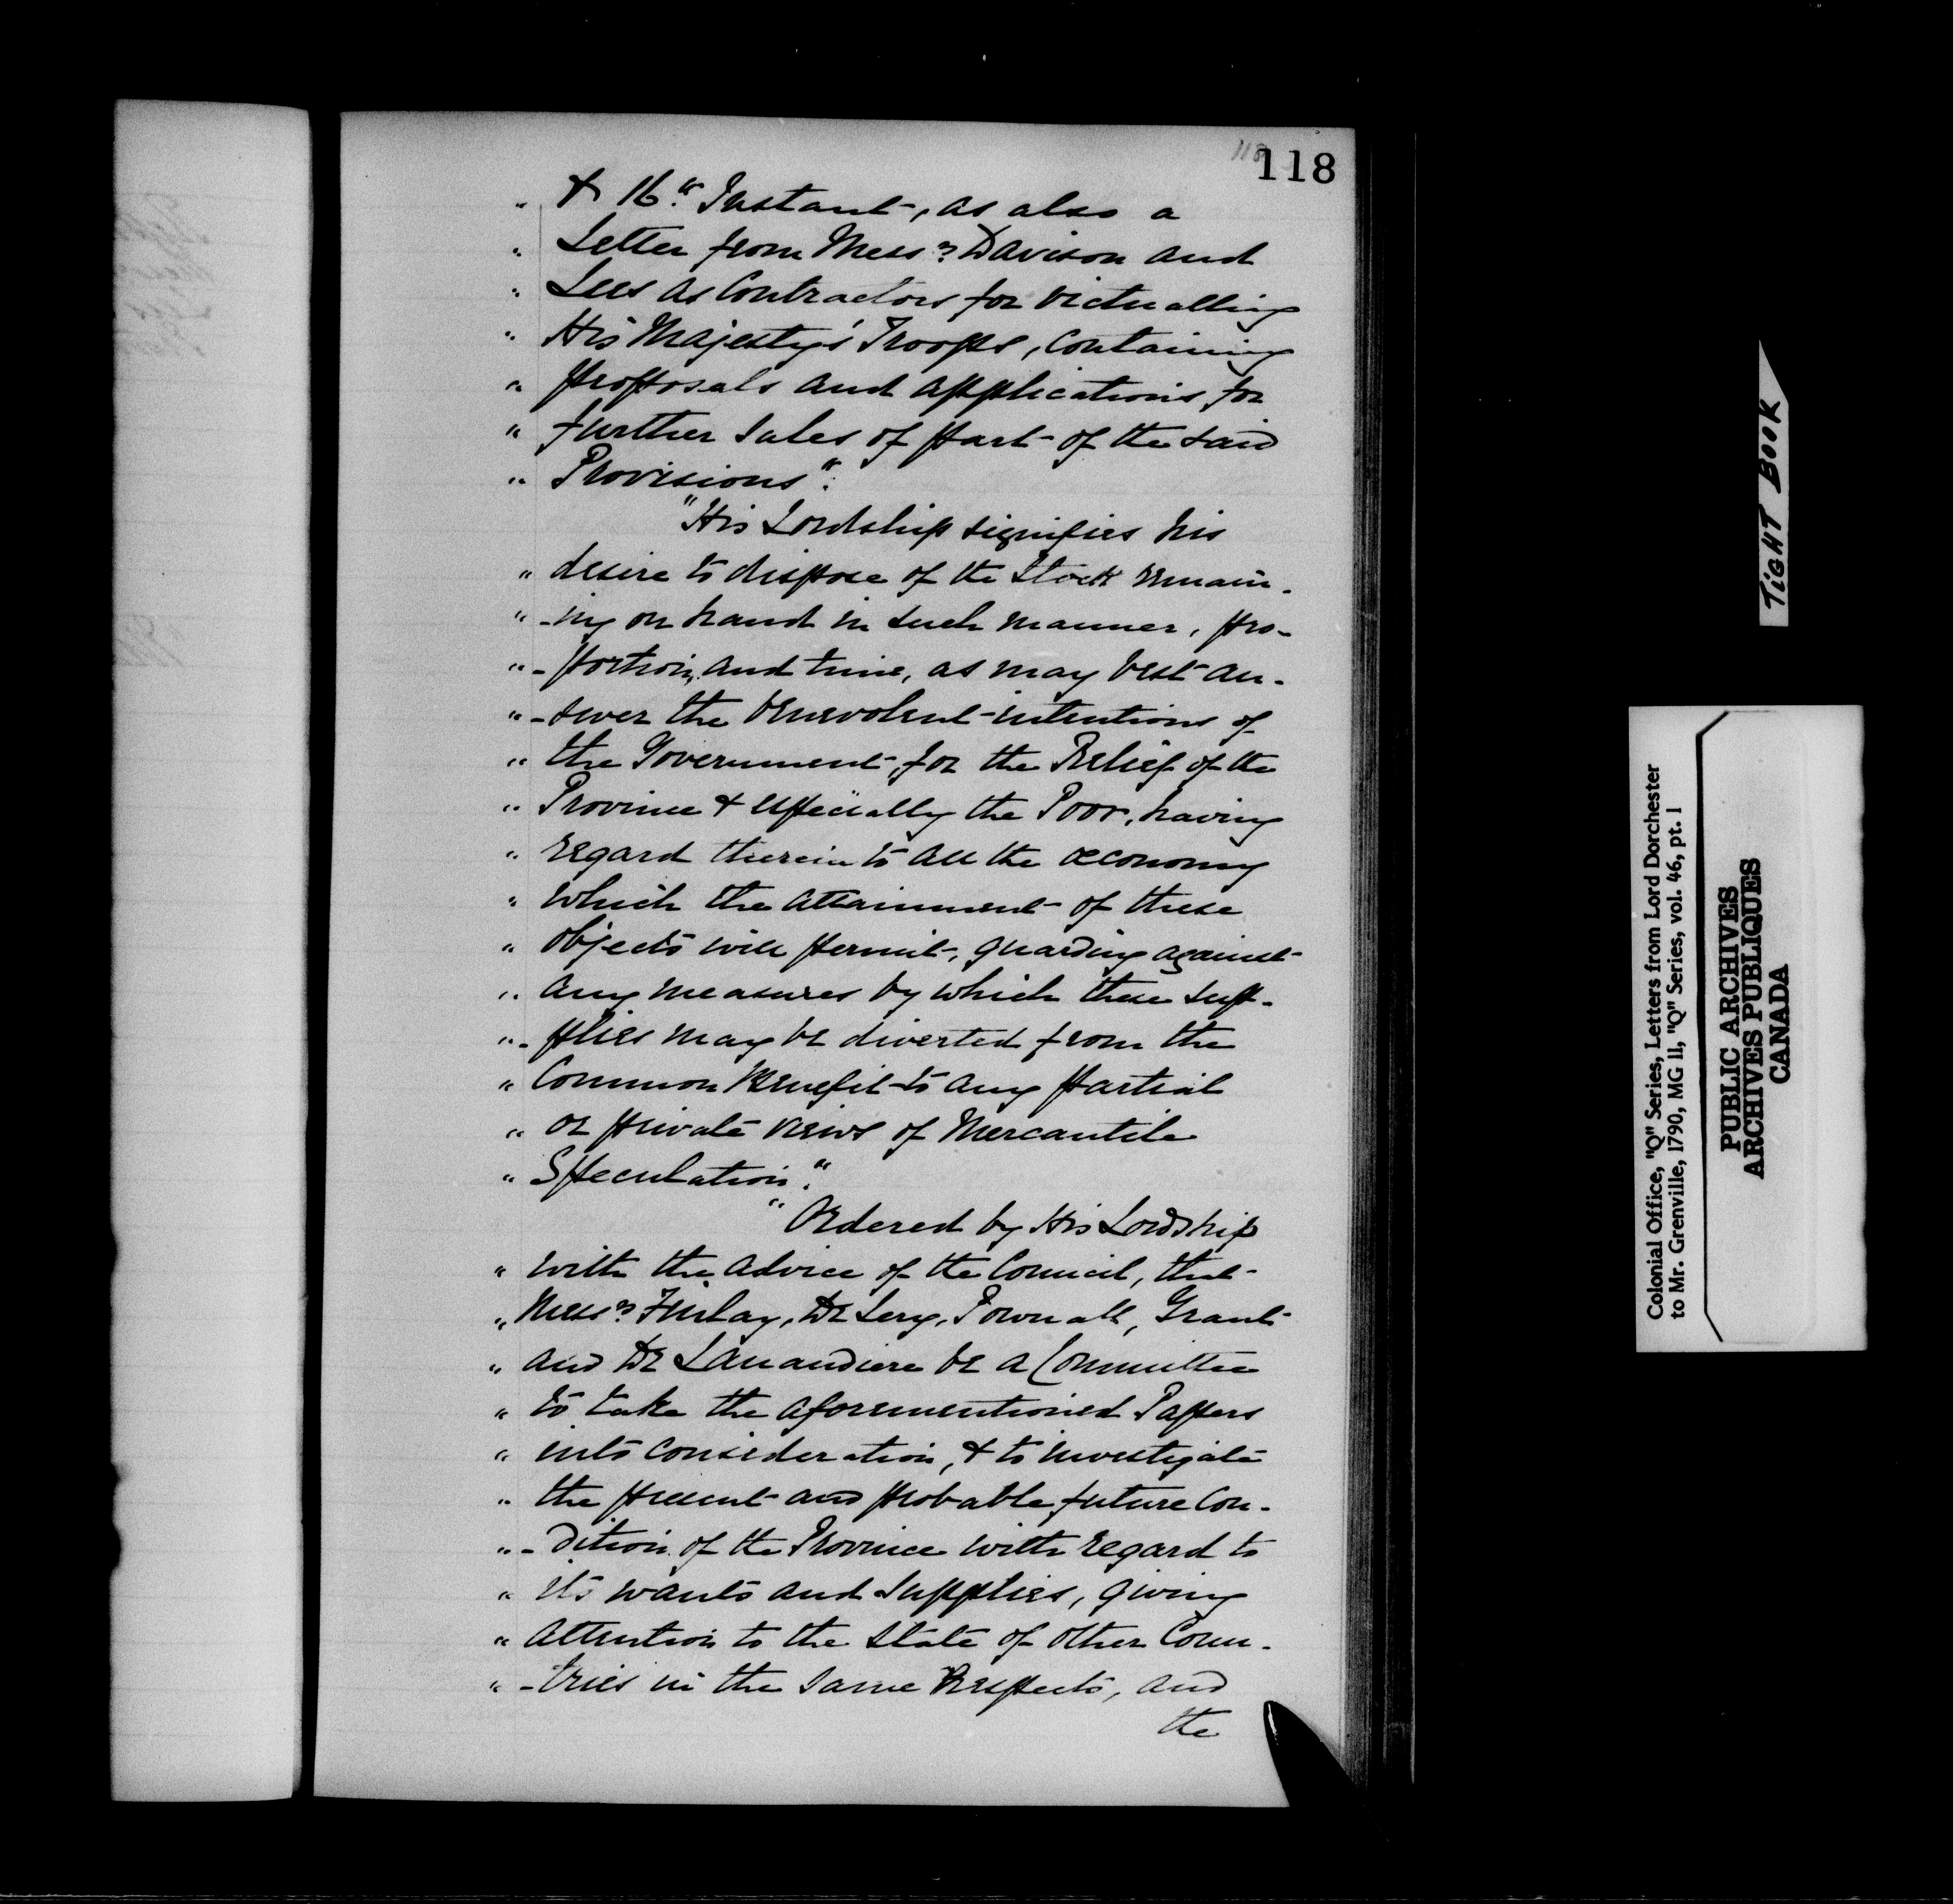 118
118
" & 16." Instant, as also a
" Letter from Mess.rs Davison and
" Lees as Contractors for victualling
" His Majesty's Troops, containing
" proposals and applications for
" further Sales of part of the said
" Provisions".
"His Lordship signifies his
" desire to dispose of the Stock remain-
" -ing on hand in such manner, pro-
" -portion, and time, as may best an-
" -swer the benevolent intentions of
" the Government, for the Relief of the
" Province & especially the Poor, having
" regard therein to all the œconomy
" which the attainment of these
" objects will permit, guarding against
" any measures by which these sup-
" -plies may be diverted from the
" Common Benefit to any partial
" or private views of Mercantile
" Speculation."
" Ordered by His Lordship
" with the advice of the Council, that
" Mess.rs Finlay, De Lery, Pownall, Grant
" and De Lanaudiere be a Committee
" to take the aforementioned Papers
" into consideration, & to investigate
" the present and probable future con-
" -dition of the Province with regard to
" its wants and supplies, giving
" attention to the state of other Coun-
" -tries in the same Respects, and
the
TIGHT BOOK
Colonial Office, "Q" Series, Letters from Lord Dorchester
to Mr. Grenville, 1790, MG 11, "Q" Series, vol. 46, pt. 1
PUBLIC ARCHIVES
ARCHIVES PUBLIQUES
CANADA